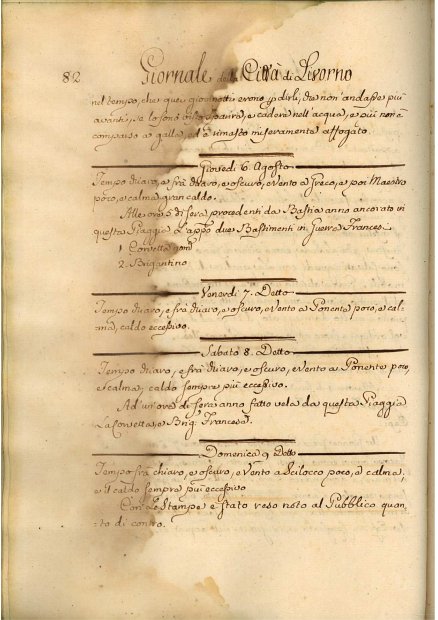 82 Giornale della Città di Livorno
nel tempo, che quei giovinotti erono p dirli, che non' andasse più
avanti, se lo sono visto sparire, e cadere nell'acqua, e più non è
comparso a galla, ed è rimasto miseramente affogato.
Giovedi 6. Agosto
Tempo chiaro, e frà chiaro, e oscuro, e vento a Greco, e poi Maestro
poco, e calma, gran caldo.
Alle ore 5 di sera, procedenti da Bastia anno ancorato in
questa Piaggia Lappo due Bastimenti in Guerra Frances.
1. Corvetta
2. Brigantino
Venerdi 7. Detto
Tempo chiaro, e frà chiaro, e oscuro, e vento a Ponente poco, e cal-
ma, caldo eccessivo.
Sabato 8. Detto
Tempo chiaro, e frà chiaro, e oscuro, e vento a Ponente poco,
e calma, caldo sempre più eccessivo.
Ad un'ore di sera anno fatto vela da questa Piaggia
La Corvetta, e Brig. Francesa.
Domenica 9 Detto
Tempo frà chiaro, e oscuro, e vento a Scilocco poco, e calma,
e il caldo sempre più eccessivo
Con le Stampe è stato reso noto al Pubblico quan-
to di contro.